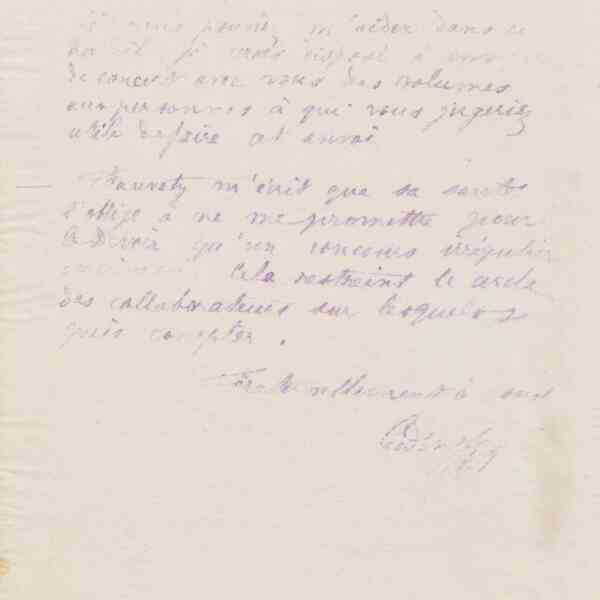 pouvez m'aider dans ce
je serais disposé à
de concert avec vous des volumes
aux personnes à qui vous jugeriez
utile de faire cet envoi
Fauvety m'écrit que sa santé
l'oblige à ne me promettre pour
le Devoir qu'un concours irrégulier
Cela restreint le cercle
des collaborateurs sur lesquels je
puis compter.
Fraternellement à vous